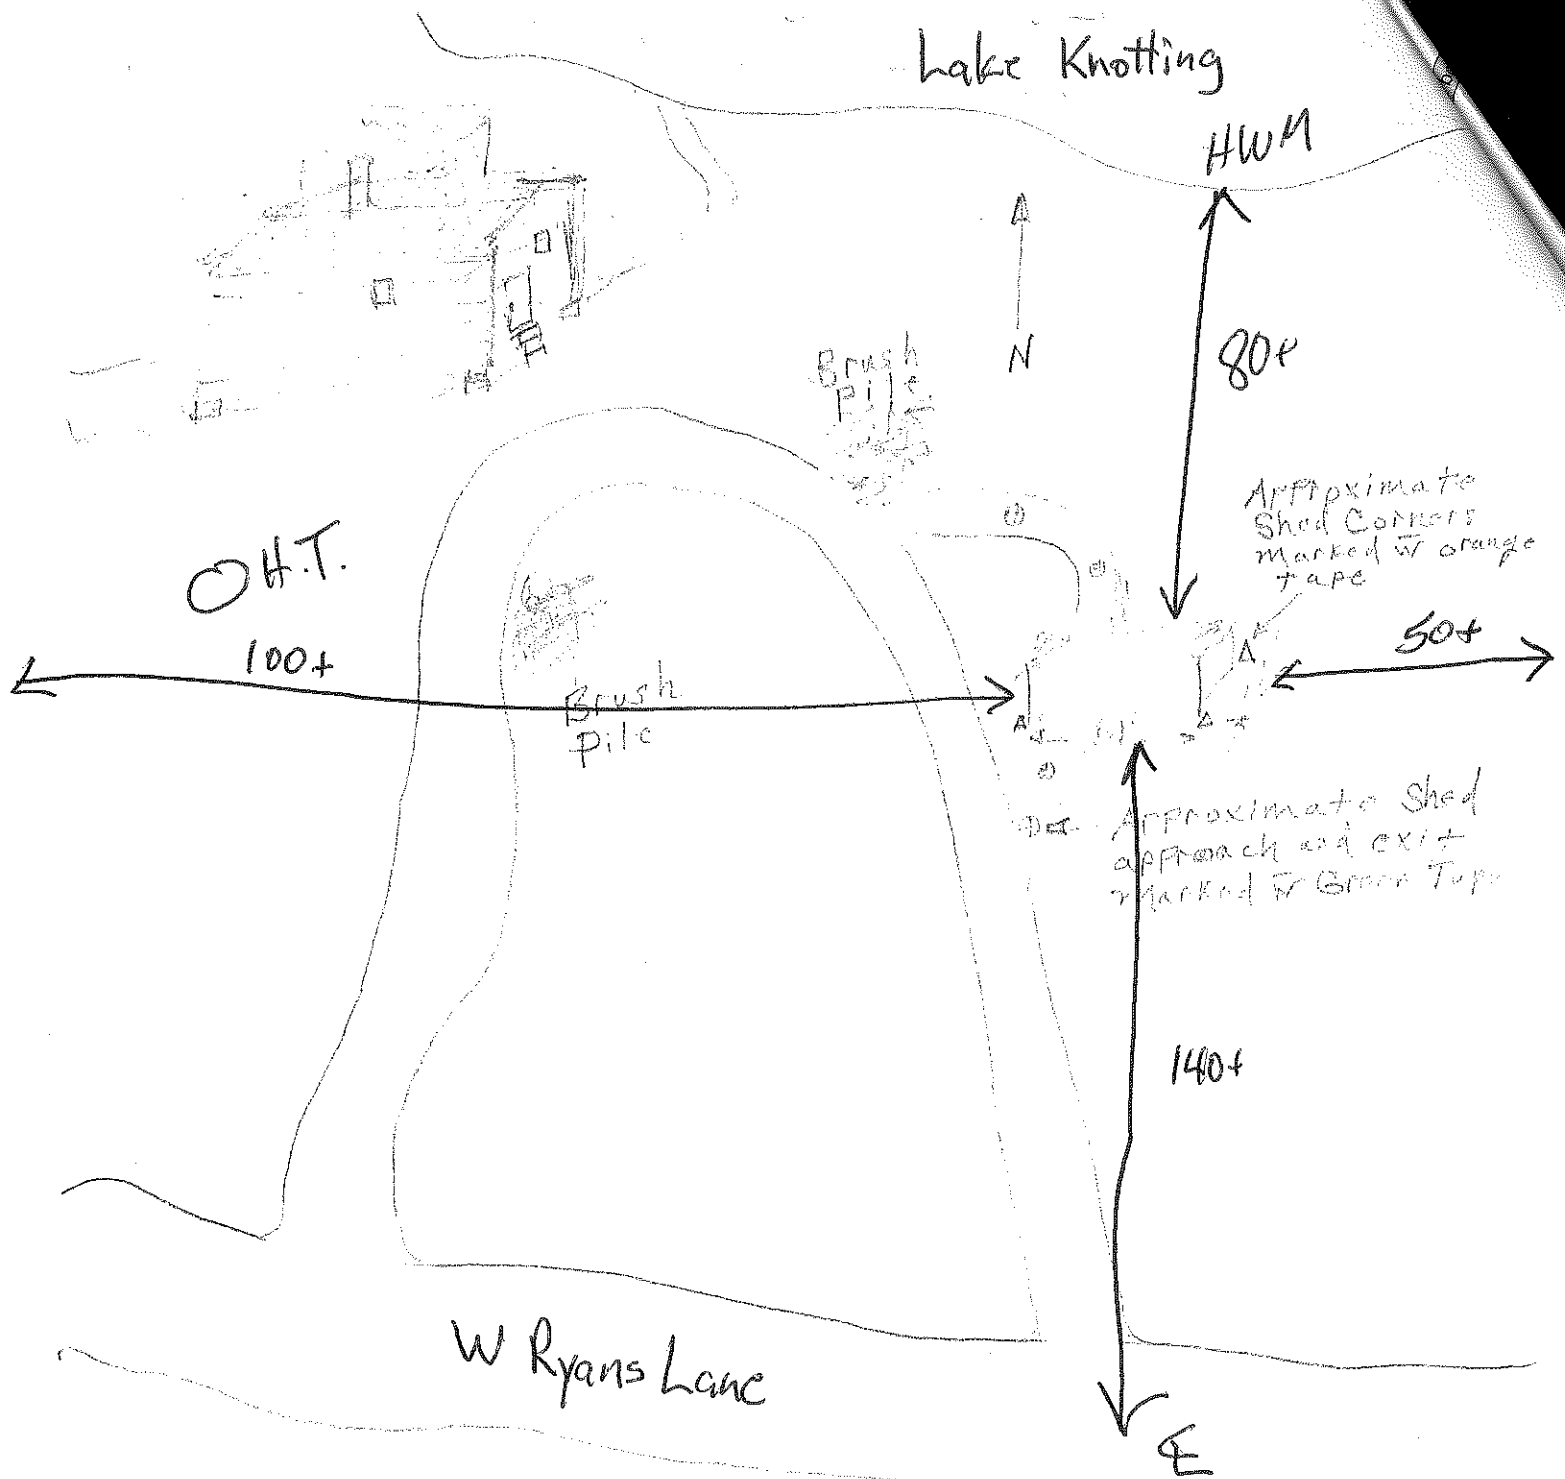 Lake Knotting
HWM
N
80+
Brush
Pile
Approximate
Shed Corners
Marked w̄ orange
tape
O H.T.
100+
50+
Brush
Pile
Approximate Shed
approach and exit
Marked w̄ Green Tape
140+
W Ryans Lane
℄